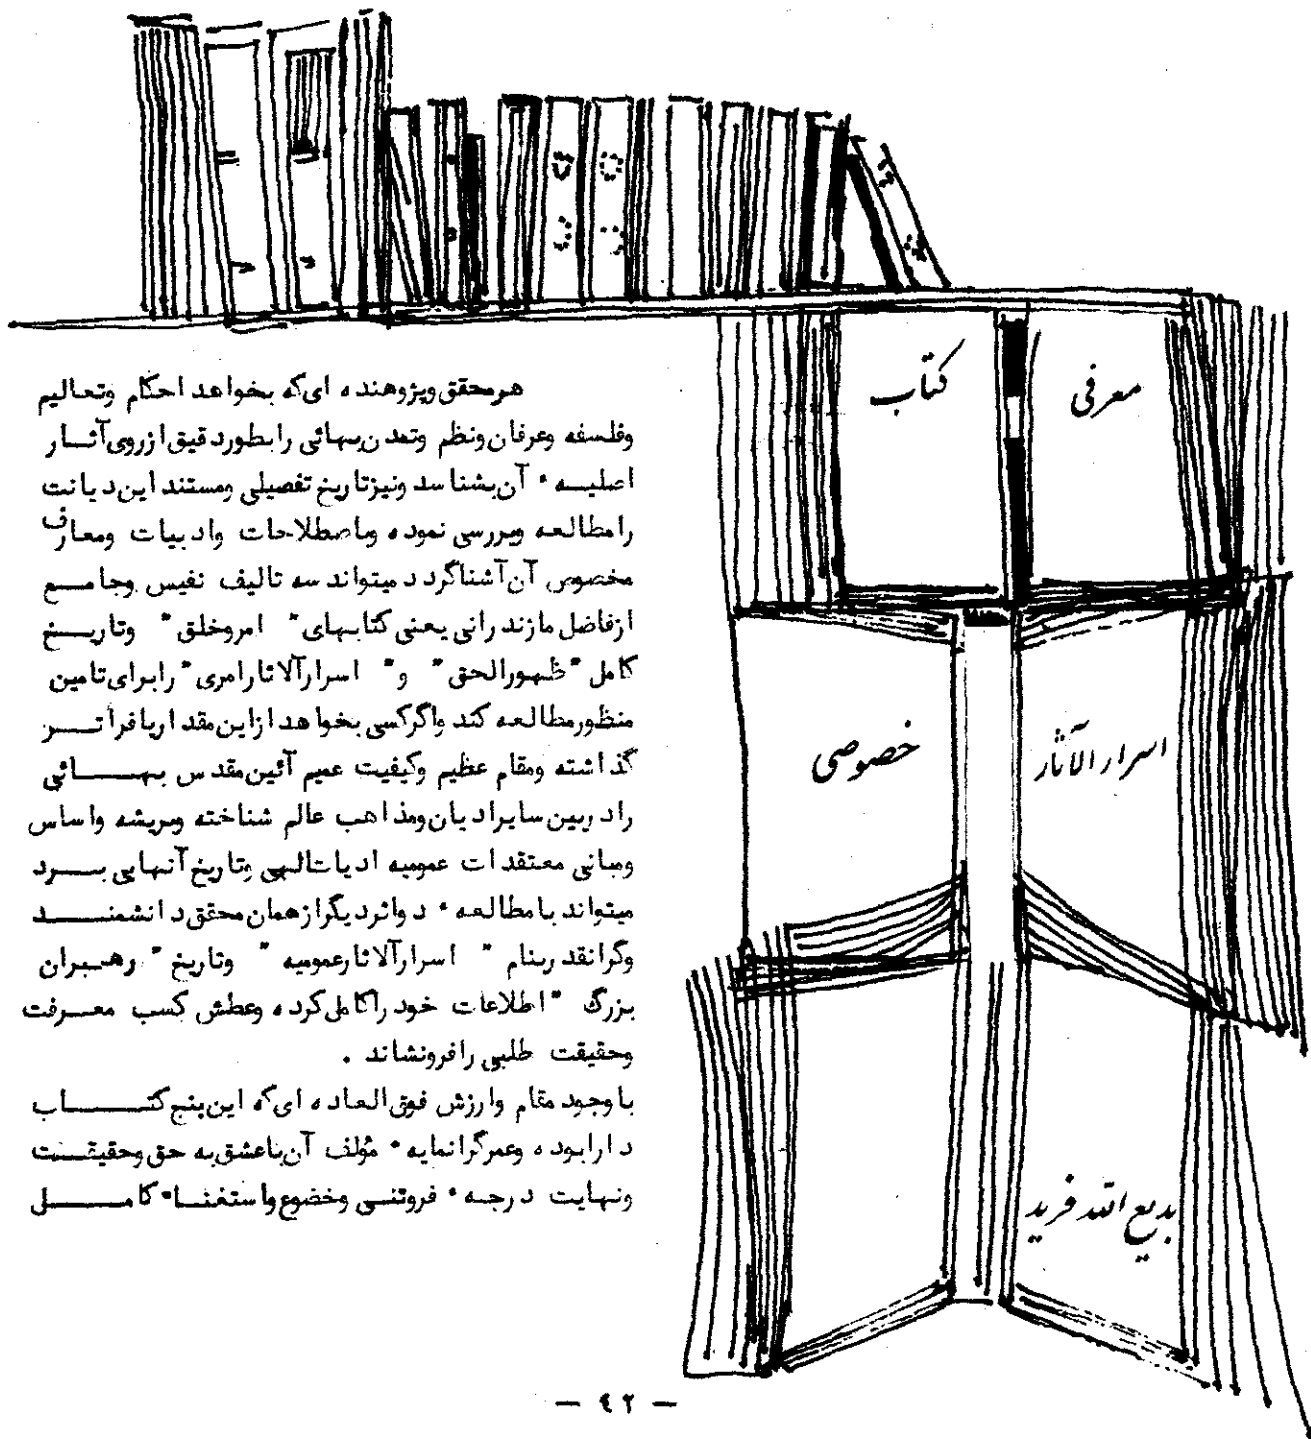 معرفی کتاب
اسرار الآثار خصوصی
بدیع الله فرید
هرمحقق وپژوهنده ای که بخواهد احکام وتعالیم
وفلسفه وعرفان ونظم وتمدن بهائی را بطور دقیق از روی آثار
اصلیه ٔ آن بشناسد ونیز تاریخ تفصیلی ومستند این دیانت
را مطالعه وبررسی نموده وبا صطلاحات وادبیات ومعارف
مخصوص آن آشنا گردد میتواند سه تالیف نفیس وجامع
از فاضل مازندرانی یعنی کتابهای " امر وخلق " وتاریخ
کامل " ظهورالحق " و " اسرارآلاثار امری " را برای تامین
منظور مطالعه کند واگر کسی بخواهد از این مقدار پا فراتر
گذاشته ومقام عظیم وکیفیت عمیم آئین مقدس بهائی
را در بین سایر ادیان ومذاهب عالم شناخته وبریشه واساس
ومبانی معتقدات عمومیه ادیات الهی وتاریخ آنها پی برد
میتواند با مطالعه ٔ دو اثر دیگر از همان محقق دانشمند
وگرانقدر بنام " اسرارآلاثار عمومیه " وتاریخ " رهبران
بزرگ " اطلاعات خود را کامل کرده وعطش کسب معرفت
وحقیقت طلبی را فرونشاند .
با وجود مقام وارزش فوق العاده ای که این پنج کتاب
دارا بوده وعمر گرانمایه ٔ مؤلف آن با عشق به حق وحقیقت
ونهایت درجه ٔ فروتنی وخضوع واستغناء کامل
— ٤٢ —